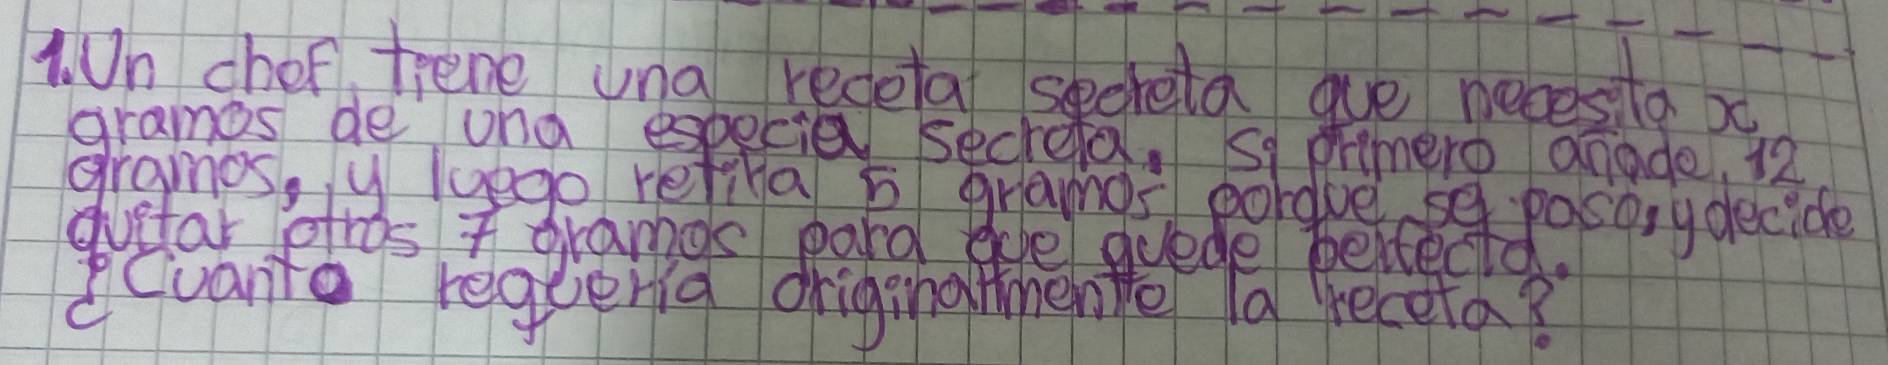 1. Un chef, tiene una receta secreta que necesita x
gramos de una especia secreta. Si primero añade, 12
gramos, y luego retira 5 gramos porque se paso, y decide
quitar otros 7 gramos para que quede perfecta.
¿Cuanto requeria originalmente la receta?